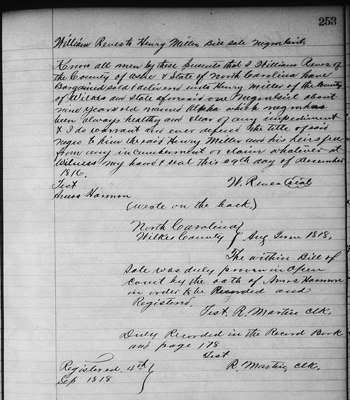 253
William Reves to Henry Miller Bill sale Negro Girl
Know all men by these presents that I William Reves of
the County of Ashe & State of North Carolina have
Bargained sold & delivered unto Henry Miller of the County
of Wilkes and State aforesaid one Negro girl about
nine years old named which negro has
been always healthy and clear of any impediment
& I do warrant and ever defend the title of said
negro to him the said Henry Miller and his heirs free
from any incumberment or claim whatever as
Witness my hand & seal this 29th day of December
1816.
Test W. Reves (seal)
Amos Harmon
(wrote on the back)
North Carolina
Wilkes County } Aug Term 1818,
The within Bill of
Sale was duly proven in open
court by the oath of Amos Harmon
in order to be Recorded and
Registered.
Test. R. Martin Clk.
Duly Recorded in the Record Book
and page 178
Test
Registered 4th R. Martin, Clk.
Sep 1818